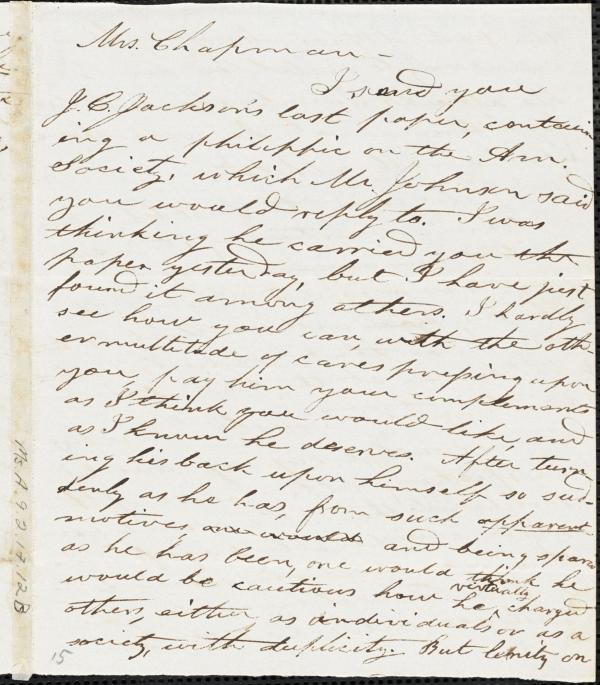 Mrs. Chapman -
I send you
J. C. Jackson's last paper, contain
ing a philippic on the Am.
Society, which Mr. Johnson said
you would reply to. I was
thinking he carried you the
paper yesterday, but I have just
found it among others. I hardly
see how you can, with the oth-
er multitude of cares pressing upon
you, pay him your compliments
as I think you would like, and
as I know he deserves. After turn
ing his back upon himself so sud-
denly as he has, from such apparent
motives, one would and being spared
as he has been, one would think he
would be cautious how he virtually charged
others, either as individuals or as a
society, with duplicity. But lenity on
15
Ms. A. 9. 2. 17. 12 B